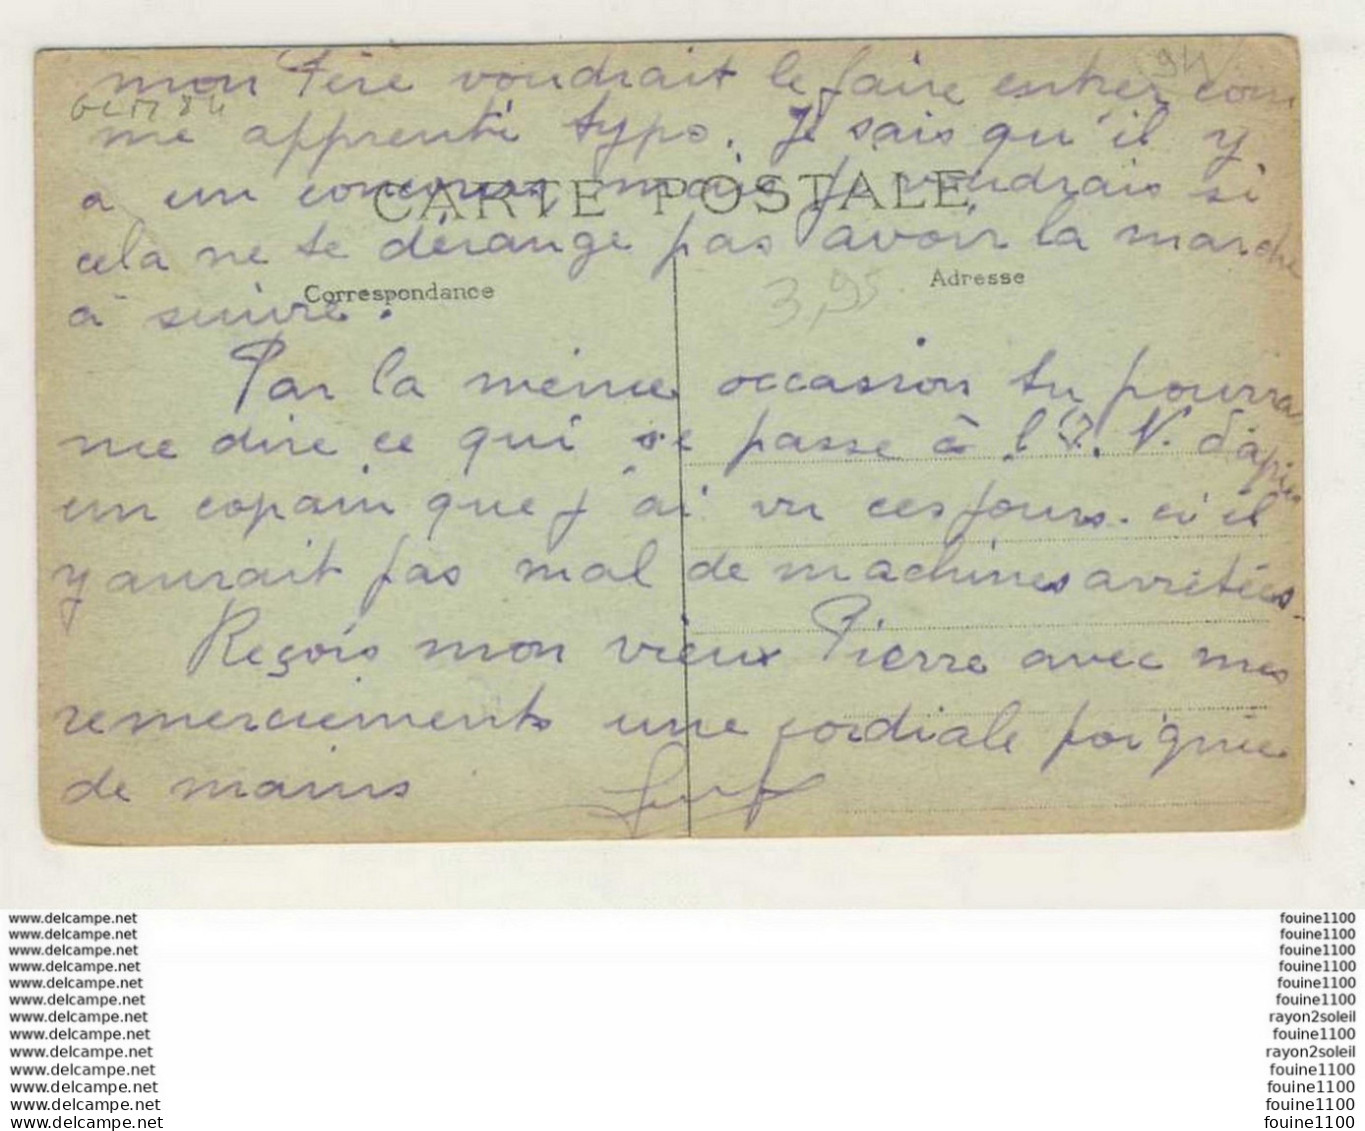 94
mon Père voudrait le faire entrer com
me apprenti typo. Je sais qu'il y
a un concours, mais je voudrais si
CARTE POSTALE
cela ne te dérange pas avoir la marche
Correspondance
Adresse
3,95
à suivre.
Par la même occasion tu pourras
me dire ce qui se passe à l'I. N. d'après
un copain que j'ai vu ces jours-ci il
y aurait pas mal de machines arrêtées.
Reçois mon vieux Pierre avec mes
remerciements une cordiale poignée
de mains
www.delcampe.net fouine1100
www.delcampe.net fouine1100
www.delcampe.net fouine1100
www.delcampe.net fouine1100
www.delcampe.net fouine1100
www.delcampe.net fouine1100
www.delcampe.net rayon2soleil
www.delcampe.net fouine1100
www.delcampe.net rayon2soleil
www.delcampe.net fouine1100
www.delcampe.net fouine1100
www.delcampe.net fouine1100
www.delcampe.net fouine1100